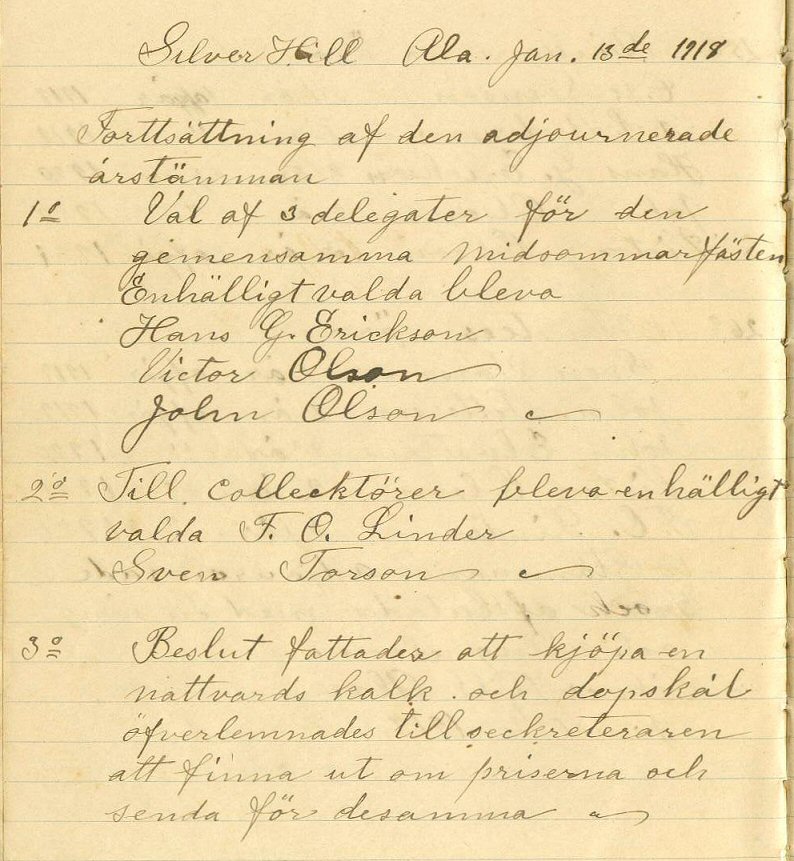 Silver Hill Ala. Jan. 13de 1918
Forttsättning af den adjournerade
årstämman
1o Val af 3 delegater för den
gemensamma midsommarfästen
Enhälligt valda bleva
Hans G. Erickson
Victor Olson
John Olson
2o Till collecktörer bleva enhälligt
valda F. O. Linder
Sven Torson
3o Beslut fattades att kjöpa en
nattvards kalk och dopskål
öfverlemnades till seckreteraren
att finna ut om priserna och
senda för desamma